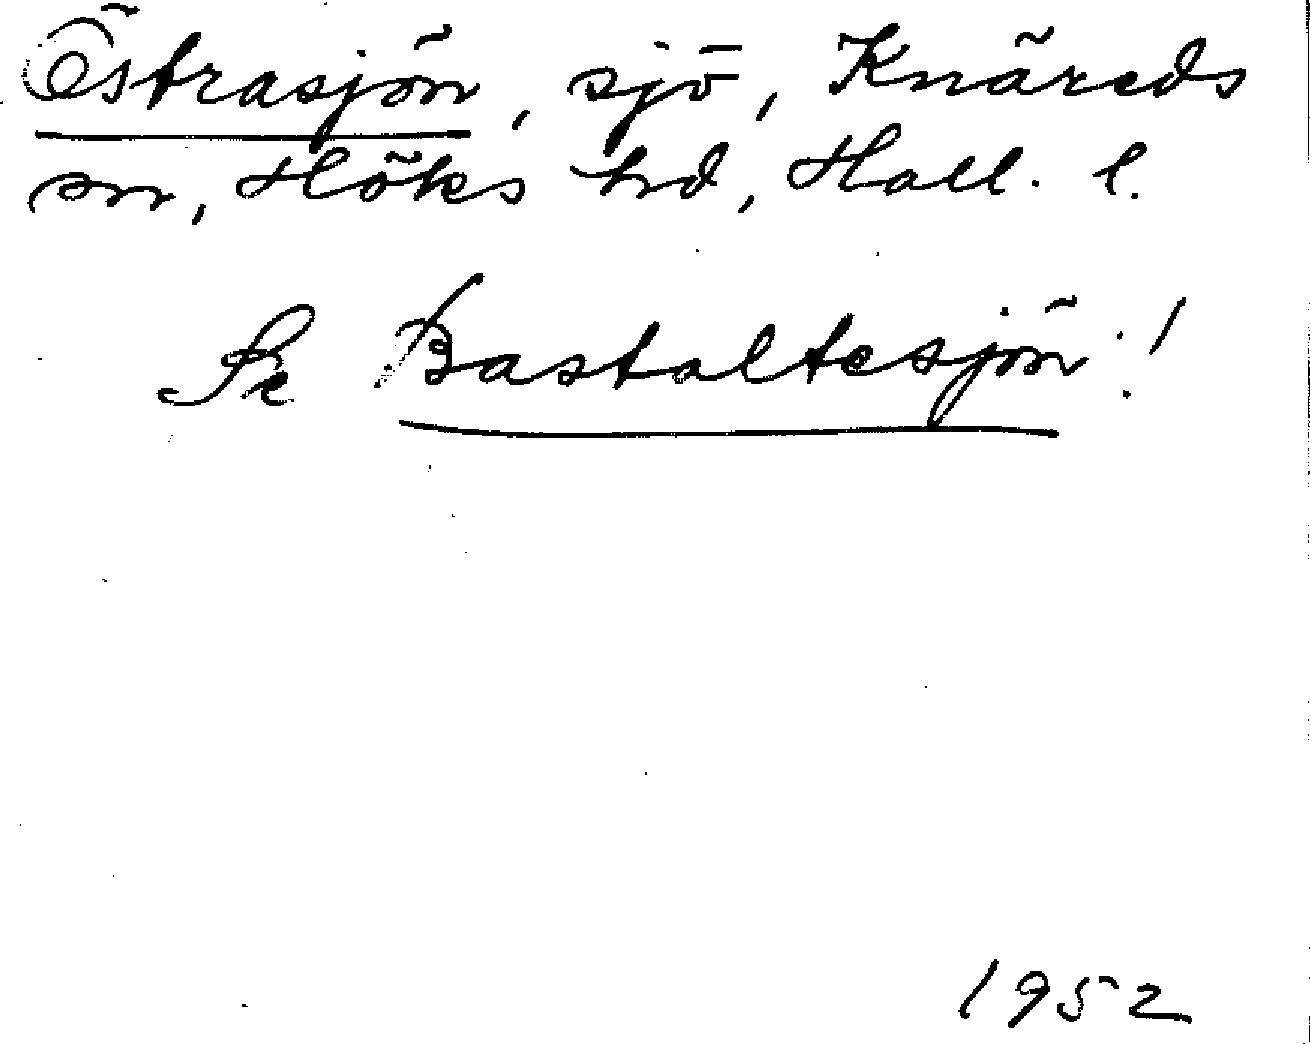 Östrasjön, sjö, Knäreds
sn, Höks hd, Hall. l.
Se Bastaltesjön!
1952